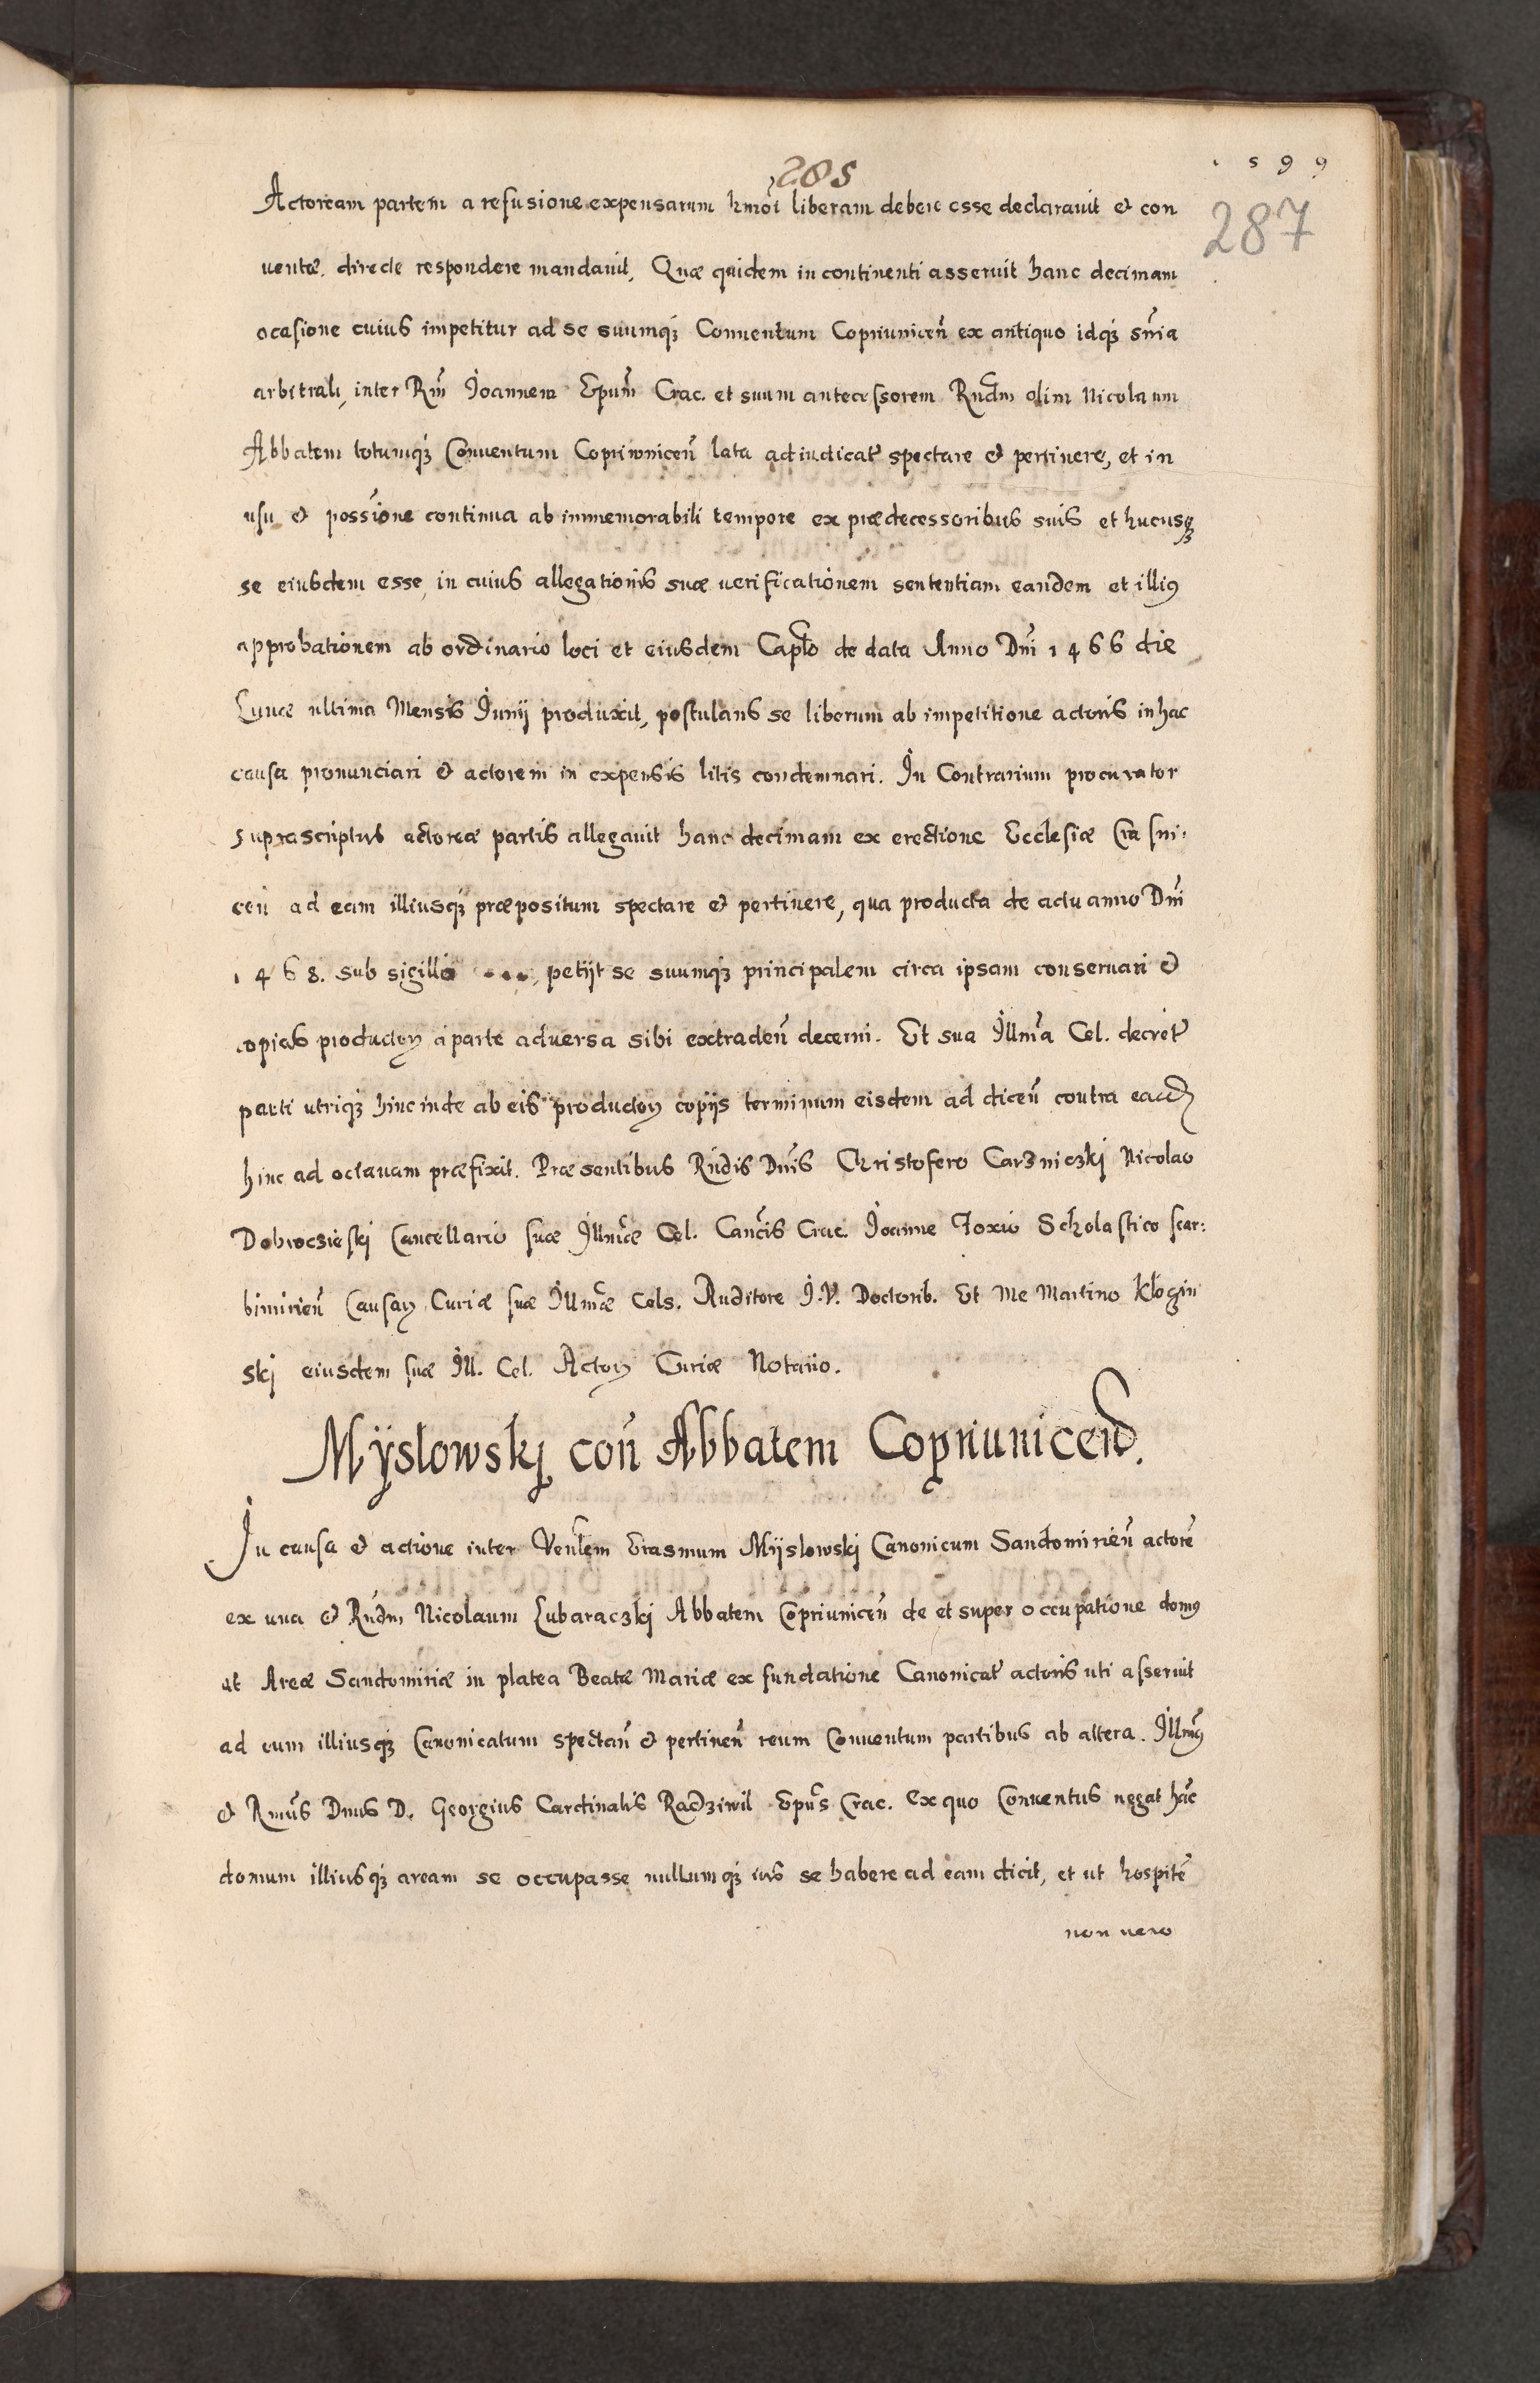 285
1599
287
Actoream partem a refusione expensarum hmoi liberam debere esse declarauit et con
uentæ directe respondere mandauit, Quæ quidem in continenti asseruit hanc decimam
ocasione cuius impetitur ad se suumq₃ Conuentum Copriuniceñ ex antiquo idq₃ sñia
arbitrali, inter Rm̃ Joannem Epum̃ Crac. et suum antecessorem Rndm olim Nicolaum
Abbatem totumq₃ Conuentum Copriwniceñ lata adiudicat̃ spectare et pertinere, et in
usu et possione continua ab immemorabili tempore ex prædecessoribus suis et hucusq₃
se eiusdem esse, in cuius allegationis suæ verificationem sententiam eandem et illiꝯ
approbationem ab ordinario loci et eiusdem Caplo de data Anno Dñi 1466 die
Lunæ ultima Mensis Junij produxit, postulans se liberum ab impetitione actoris in hac
causa pronunciari et actorem in expensis litis condemnari. In Contrarium procurator
suprascriptus actoreæ partis allegauit hanc decimam ex erectione Ecclesiæ Crasni:
ceñ ad eam illiusq₃ præpositum spectare et pertinere, qua producta de actu anno Dñi
1468. sub sigillo ...., petijt se suumq₃ principalem circa ipsam conseruari et
copias productoꝝ a parte aduersa sibi extradeñ decerni. Et sua Illma Cel. decret̃
parti utriq₃ hinc inde ab eis productoꝝ copijs terminum eisdem ad diceñ contra eacdꝫ
hinc ad octauam præfixit. Præsentibus Rndis Dnis Christofero Carzniczkj Nicolao
Dobrocżieskj Cancellario suæ Illmæ Cel. Cancis Crac. Joanne Foxio Scholastico scar:
bimirieñ Causaꝝ Curiæ suæ Illmæ Cels. Auditore J.V. Doctorib. Et Me Martino Klogin
skj eiusdem suæ Ill. Cel. Actoꝝ Curiæ Notario.
Mÿslowskj coñ Abbatem Copriunicen̄.
In causa et actione inter Venlem Erasmum Mÿslowskj Canonicum Sandomirieñ actorẽ
ex una et Rndm Nicolaum Lubaraczkj Abbatem Copriuniceñ de et super occupatione domꝯ
et Areæ Sandomiriæ in platea Beatæ Mariæ ex fundatione Canonicat̃ actoris uti asseruit
ad eum illiusq₃ Canonicatum spectañ et pertineñ reum Conuentum partibus ab altera. Illmꝯ
et Rmus Dnus D. Georgius Cardinalis Radziwil Epus Crac. Ex quo Conuentus negat hãc
domum illiusq₃ aream se occupasse nullumq₃ ius se habere ad eam dicit, et ut hospitẽ
non vero